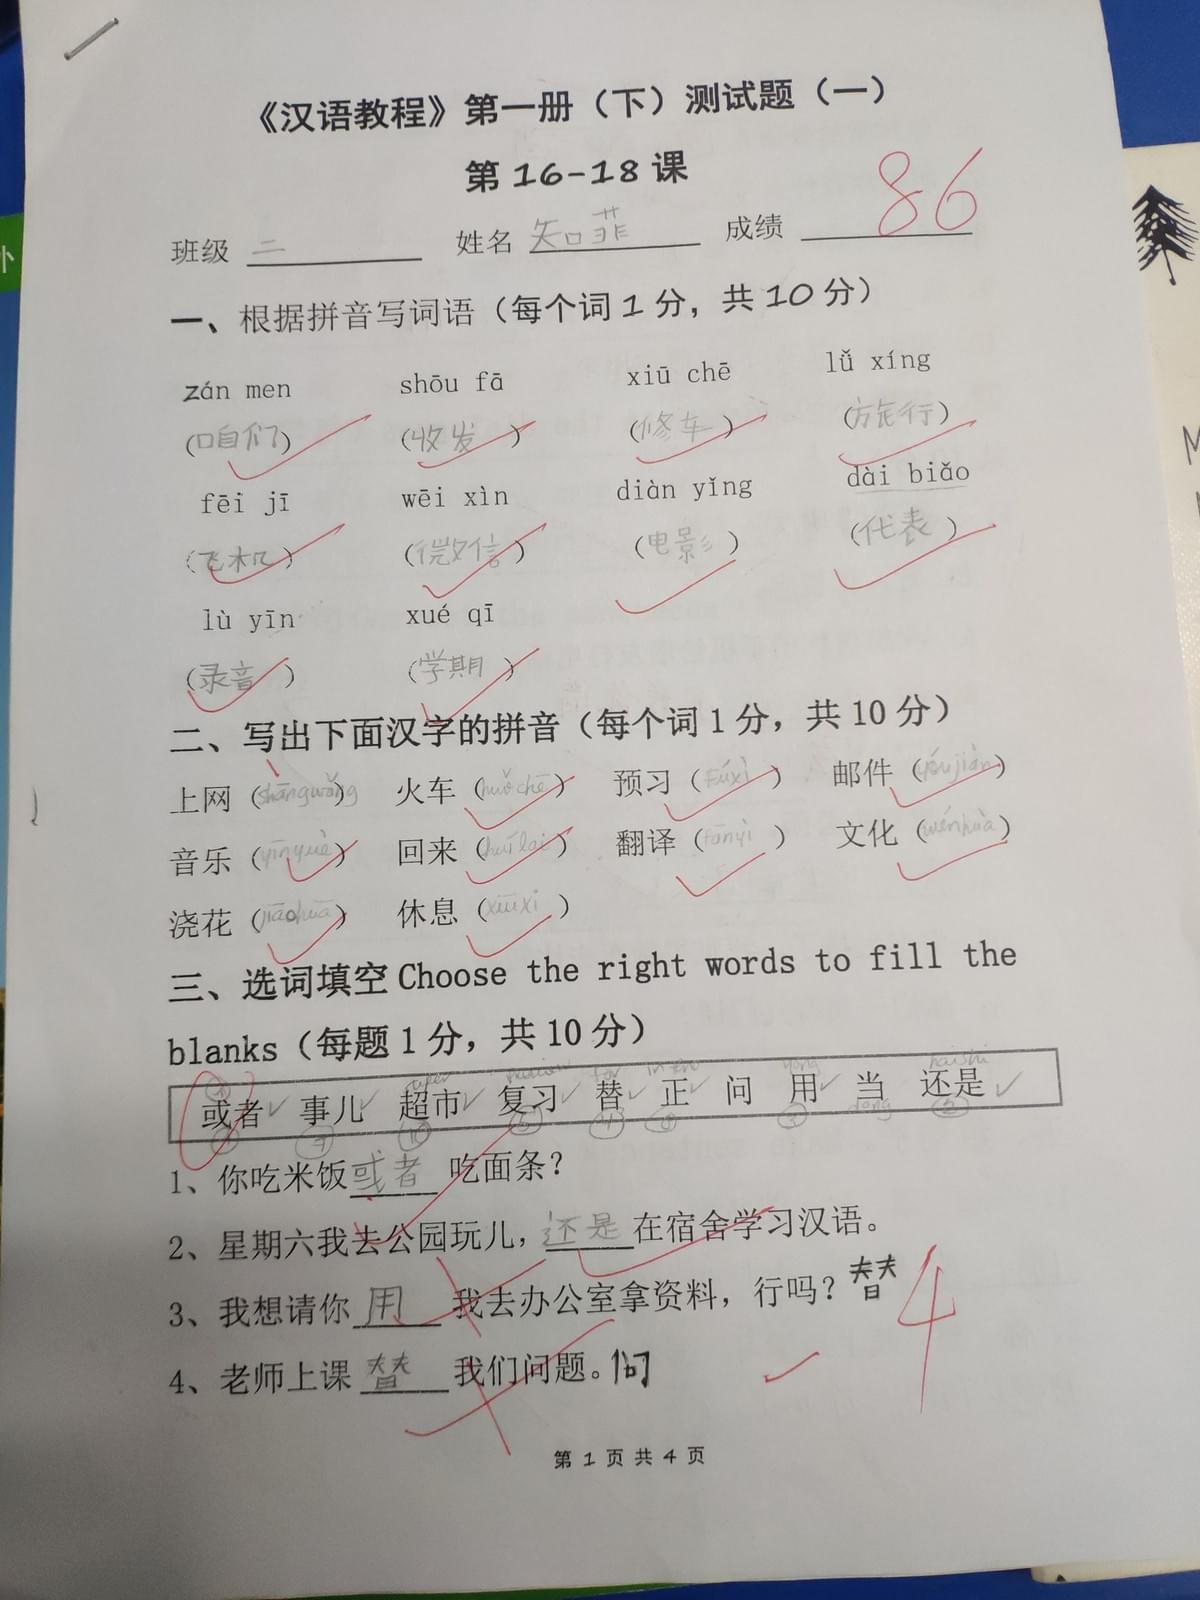 《汉语教程》第一册（下）测试题（一）
第16-18课
班级 二 姓名 知菲 成绩 86
一、根据拼音写词语（每个词1分，共10分）
zán men shōu fā xiū chē lǚ xíng
(咱们) (收发) (修车) (旅行)
fēi jī wēi xìn diàn yǐng dài biǎo
(飞机) (微信) (电影) (代表)
lù yīn xué qī
(录音) (学期)
二、写出下面汉字的拼音（每个词1分，共10分）
上网（shāngwǎng） 火车（huǒchē） 预习（Fúxì） 邮件（yóujiàn）
音乐（yīnyuè） 回来（huílai） 翻译（fānyì） 文化（wénhuà）
浇花（jiāohuā） 休息（xiūxi）
三、选词填空Choose the right words to fill the
blanks（每题1分，共10分）
super for yong haishi
或者 事儿 超市 复习 替 正 问 用 当 还是
dang
1、你吃米饭或者 吃面条？
2、星期六我去公园玩儿，还是在宿舍学习汉语。
3、我想请你 用 我去办公室拿资料，行吗？替 4
4、老师上课 替 我们问题。问
第 1 页 共 4 页